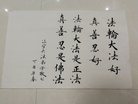 法輪大法好
真善忍好
法輪大法是正法
真善忍是佛法